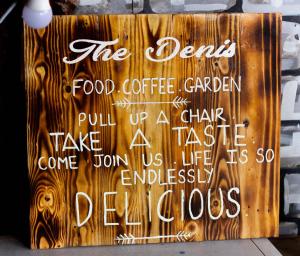 The Denis
FOOD.COFFEE.GARDEN
PULL UP A CHAIR.
TAKE A TASTE.
COME JOIN US. LIFE IS SO
ENDLESSLY
DELICIOUS.